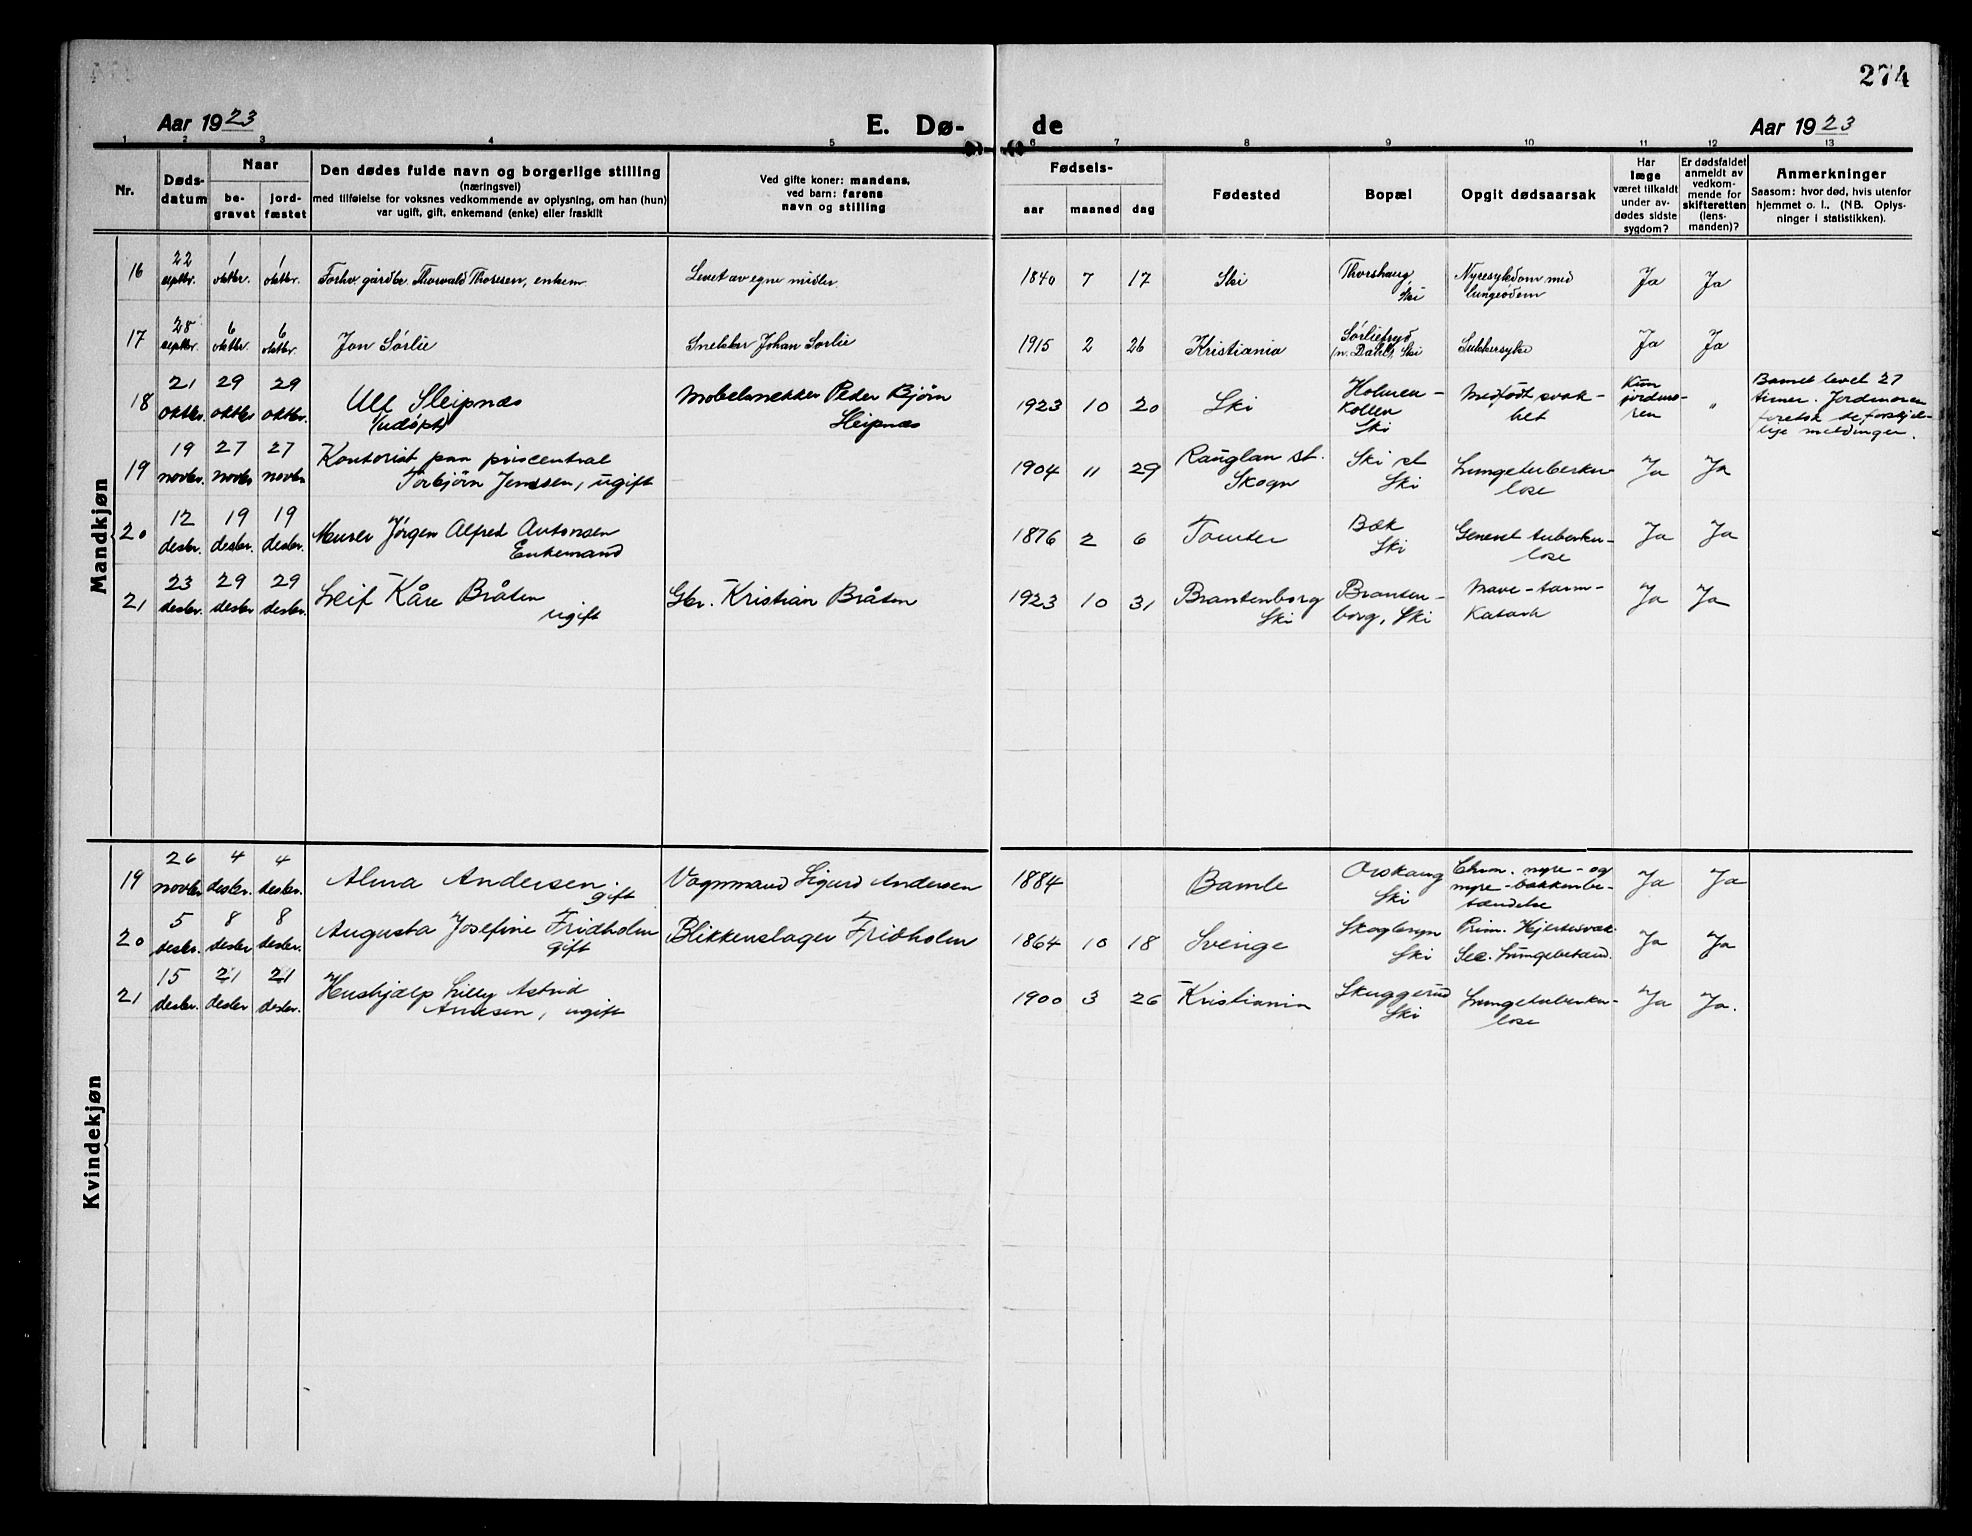 274
Aar 1923
E. Dø-
de
Aar 1923
1 2 3 4 5 6 7 8 9 10 11 12 13
Nr.
Døds-
datum
Naar
be-
gravet
jord-
fæstet
Den dødes fulde navn og borgerlige stilling
(næringsvei)
med tilføielse for voksnes vedkommende av oplysning, om han (hun)
var ugift, gift, enkemand (enke) eller fraskilt
Ved gifte koner: mandens,
ved barn: farens
navn og stilling
Fødsels-
aar
maaned
dag
Fødested
Bopæl
Opgit dødsaarsak
Har
læge
været tilkaldt
under av-
dødes sidste
sygdom?
Er dødsfaldet
anmeldt av
vedkom-
mende for
skifteretten
(lens-
manden)?
Anmerkninger
Saasom: hvor død, hvis utenfor
hjemmet o. l., (NB. Oplys-
ninger i statistikken).
Mandkjøn
16
22
septbr.
1
oktbr.
1
oktbr.
Forhv. gårdbr. Thorvald Thoresen, enkem
Levet av egne midler
1840 7 17
Ski
Thorshaug
Ski
Nyresykdom med
lungeødem
Ja Ja
17
28
septbr.
6
oktbr.
6
oktbr.
Jon Sørlie
Snekker Johan Sørlie
1915 2 26
Kristiania
Sørliefryd
(n. Dahl), Ski
Sukkersyke
Ja Ja
18
21
oktbr.
29
oktbr.
29
oktbr.
Ulf Sleipnæs
(udøpt)
Møbelsnekker Peder Bjørn
Sleipnæs
1923 10 20
Ski
Holmen-
kollen
Ski
Medfødt svak-
het
Kun
jordmo-
ren
"
Barnet levet 27
timer. Jordmoren
foretok de forskjel-
lige meldinger.
19
19
novbr.
27
novbr
27
novbr
Kontorist paa priscentral
Torbjørn Jenssen, ugift
1904 11 29
Rauglan st.
Skogn
Ski st
Ski
Lungetuberku-
lose
Ja Ja
20
12
desbr.
19
desbr.
19
desbr.
Murer Jørgen Alfred Antonsen
Enkemand
1876 2 6
Tomter
Bæk
Ski
Generel tuberku-
lose
Ja Ja
21
23
desbr.
29
desbr
29
desbr.
Leif Kåre Bråten
ugift
Gbr. Kristian Bråten
1923 10 31
Brantenborg
Ski
Branten-
borg, Ski
Mave-tarm-
katarh
Ja Ja
Kvindekjøn
19
26
novbr
4
desbr.
4
desbr.
Alma Andersen
gift
Vognmand Sigurd Andersen
1884
Bamle
Ski
Chron. nyre- og
nyre-bækkenbe-
tændelse
Ja Ja
20
5
desbr.
8
desbr
8
desbr.
Augusta Josefine Fridholm
gift
Blikkenslager Fridholm
1864 10 18
Sverige
Ski
Prim. Hjertesvak.
Sec. Lungebetænd.
Ja Ja
21
15
desbr.
21
desbr
21
desbr.
Hushjælp Lilly Astrid
ugift
1900 3 26
Kristiania
Skuggerud
Ski
Lungetuberku-
lose
Ja Ja.